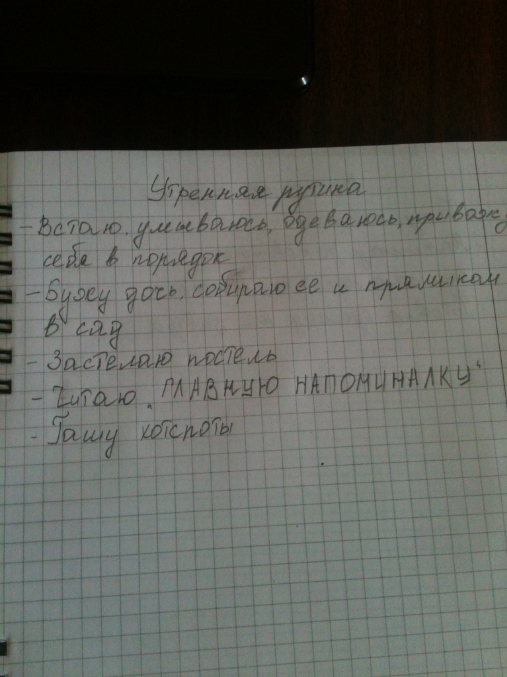 Утренняя рутина
- Встаю, умываюсь, одеваюсь, привожу
себя в порядок
- Бужу дось, собираю ее и прямиком
в сад
- Застелаю постель
- Читаю „ГЛАВНУЮ НАПОМИНАЛКУ"
- Гашу хотспоты